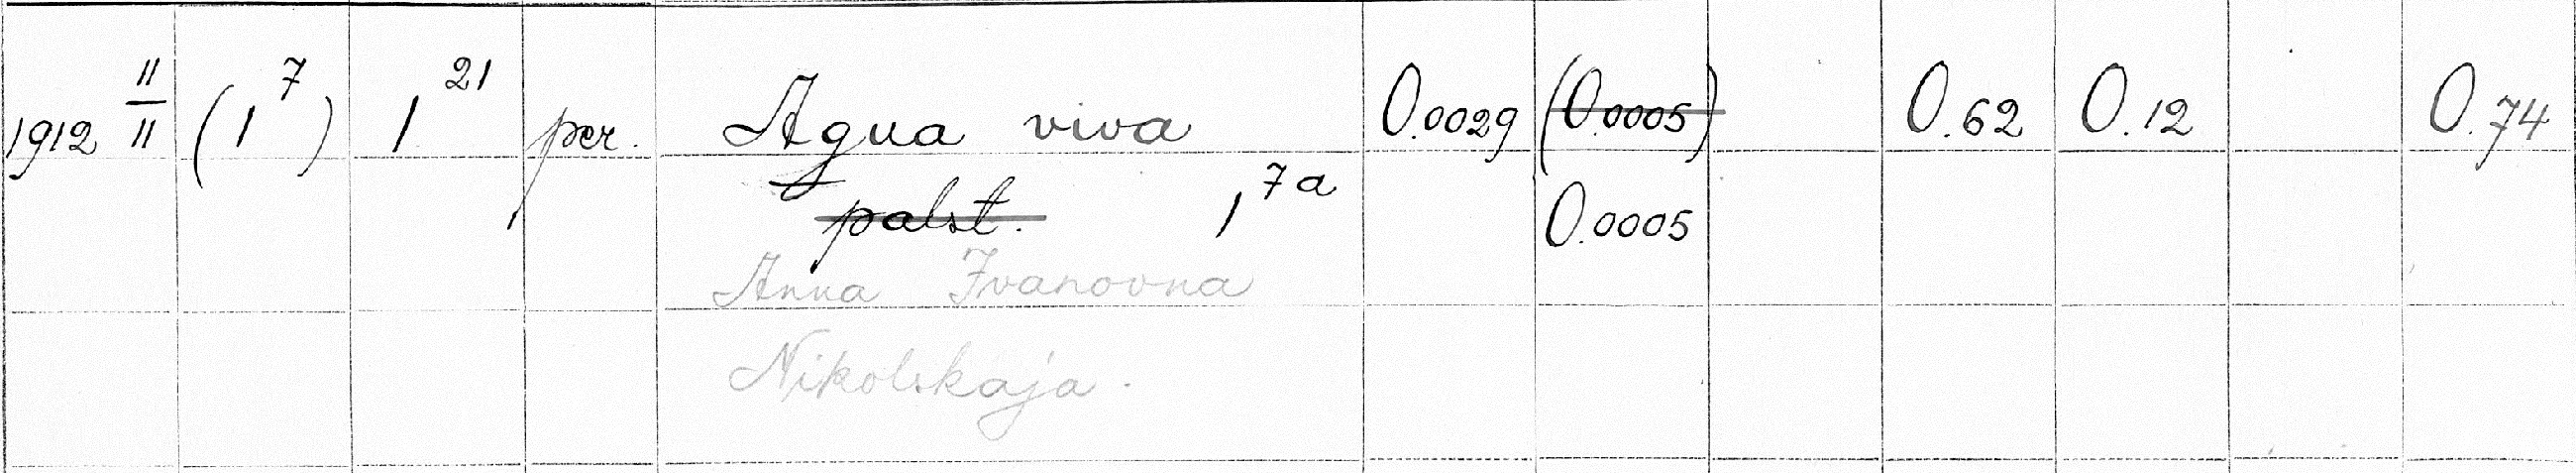 1912 11/11 (1 7) 1 21 per. Agua viva 0.0029 (0.0005) 0.62 0.12 0.74
palst. 1 7a 0.0005
Anna Ivanovna
Nikolskaja.